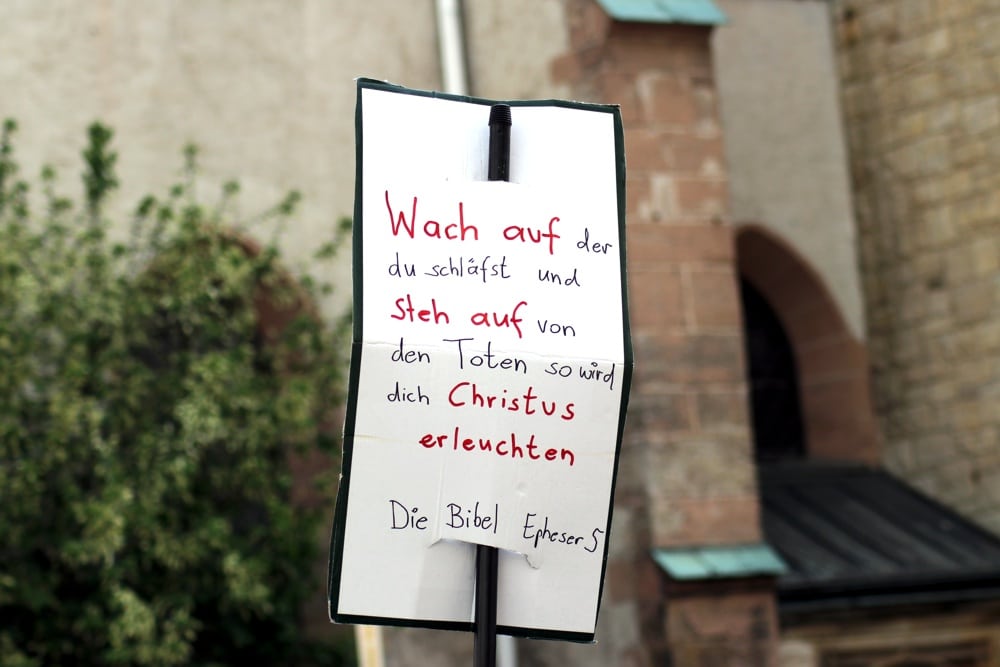 Wach auf der
du schläfst und
Steh auf von
den Toten so wird
dich Christus
erleuchten
Die Bibel Epheser 5